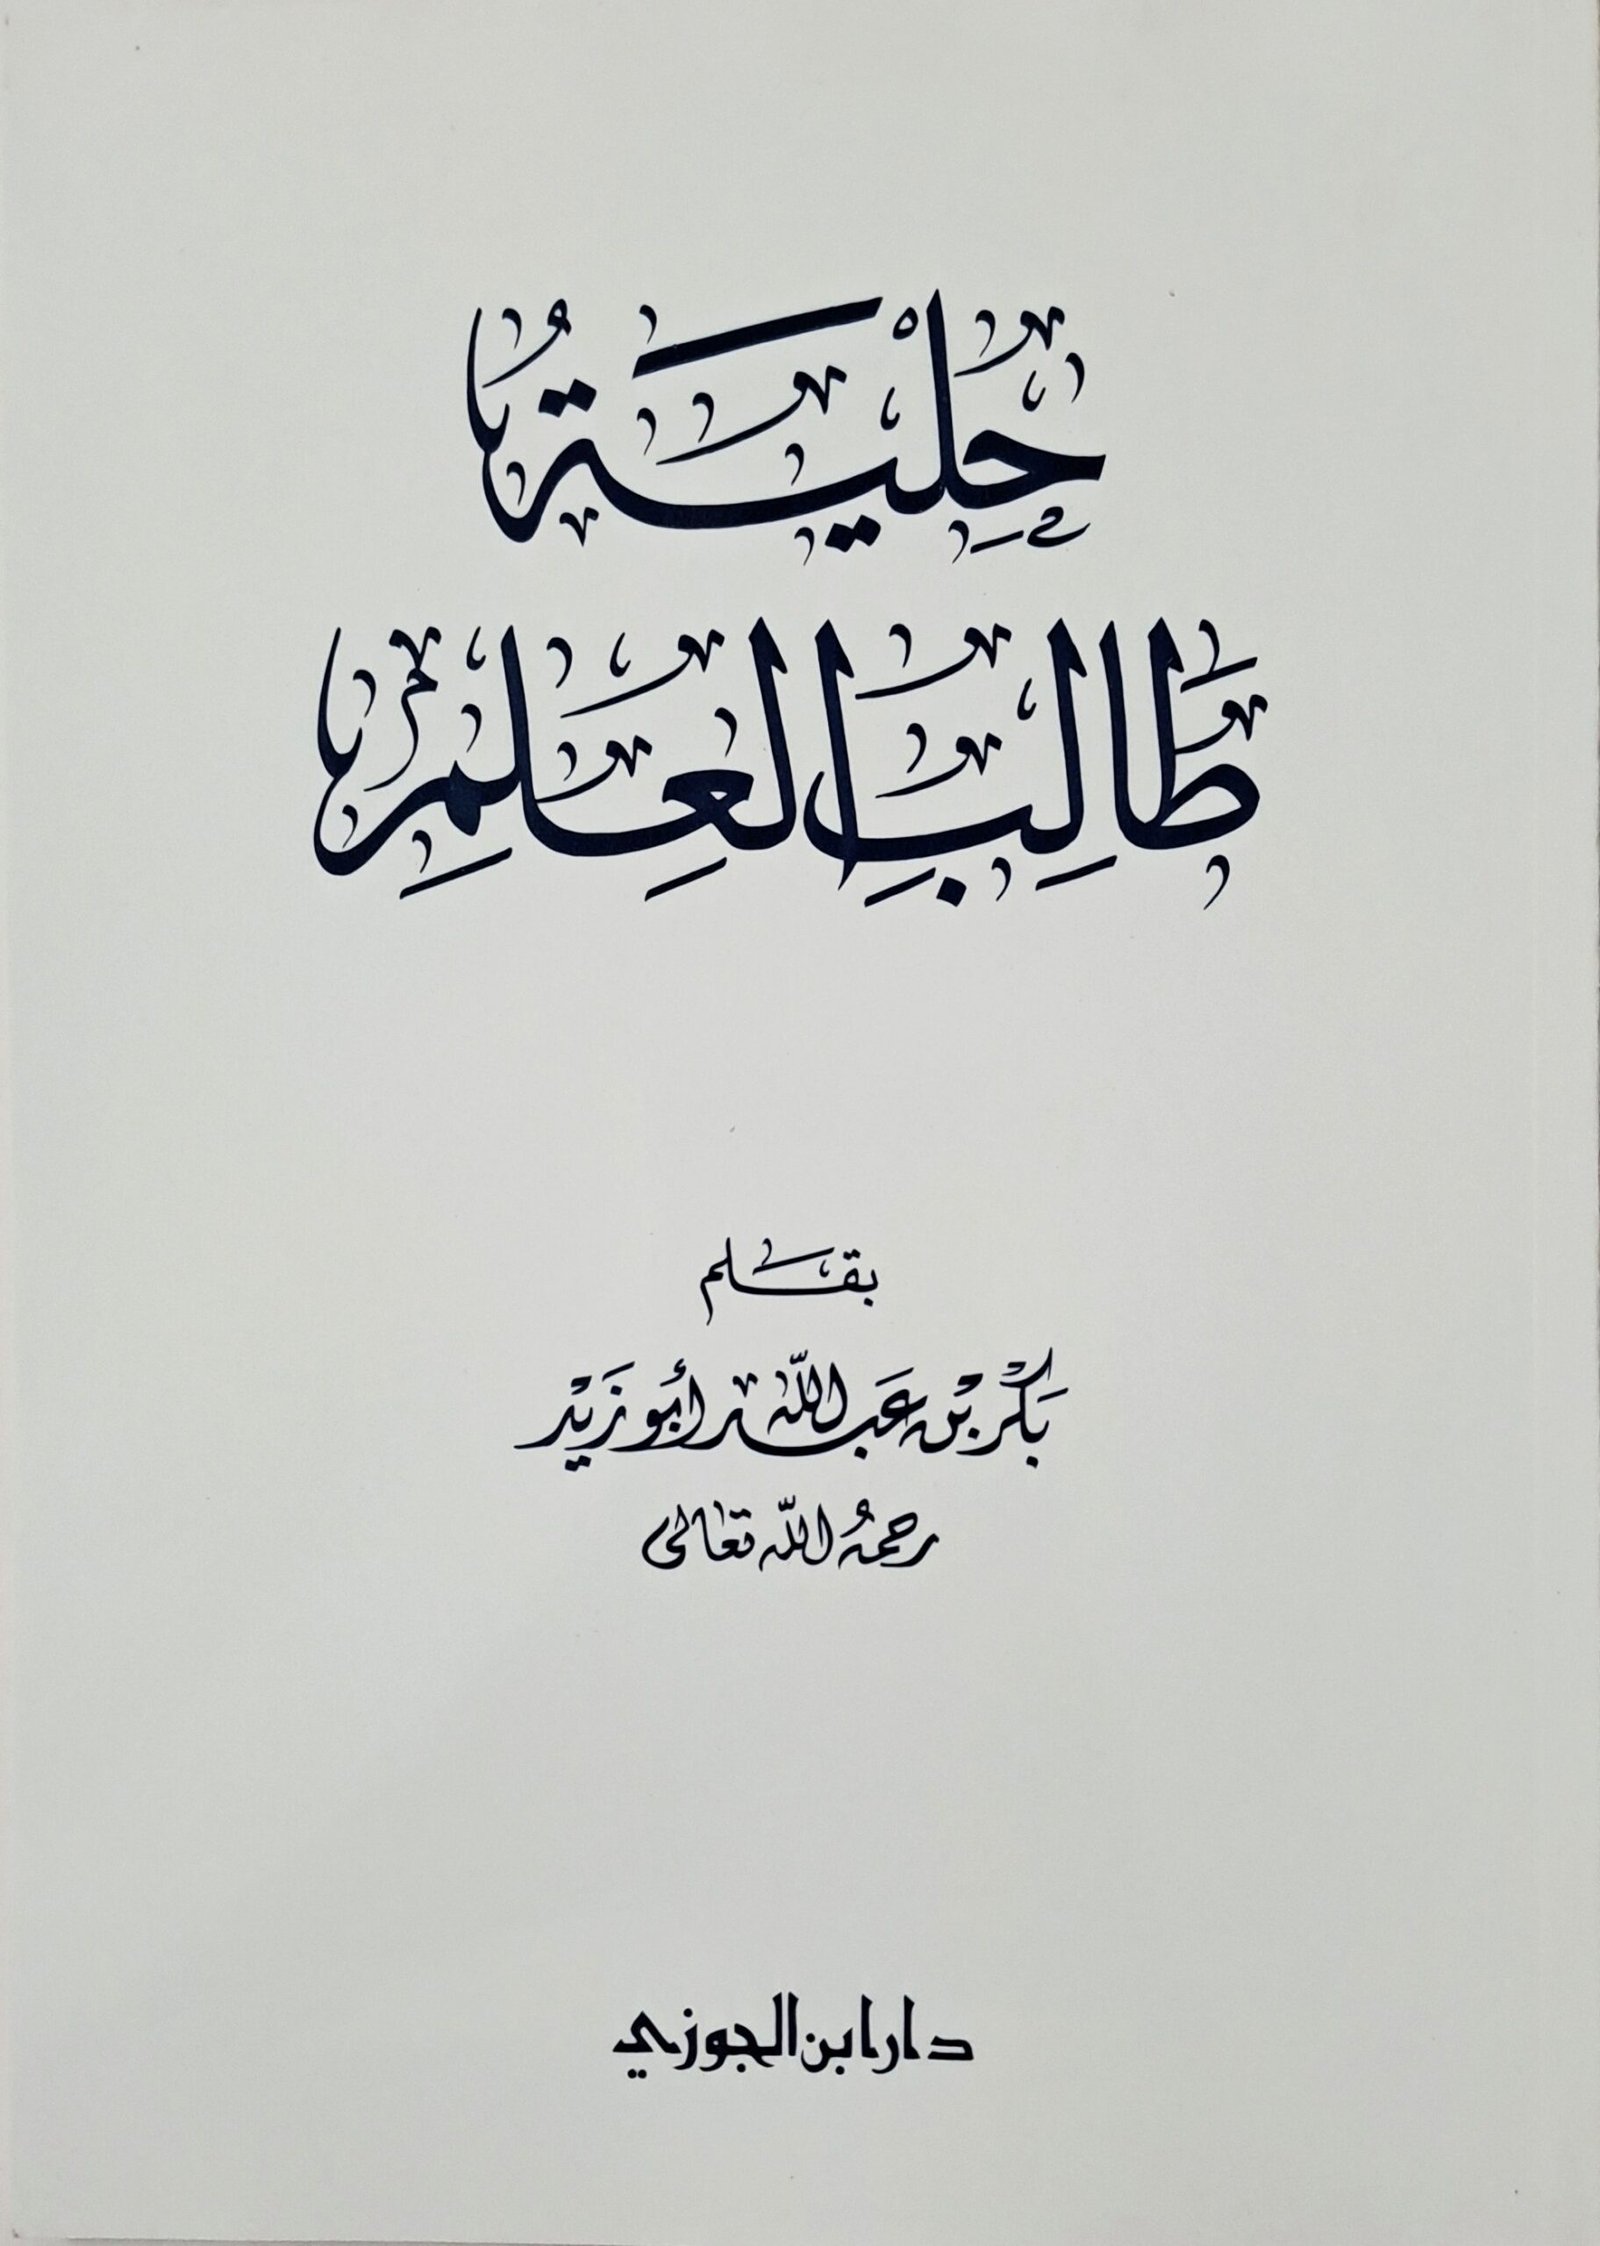 حِلْيَةُ
طَالِبِ العِلْمِ
بقلم
بَكْر بْن عَبد اللّه أَبو زَيْد
رحمهُ اللّه تعالى
دار ابن الجوزي